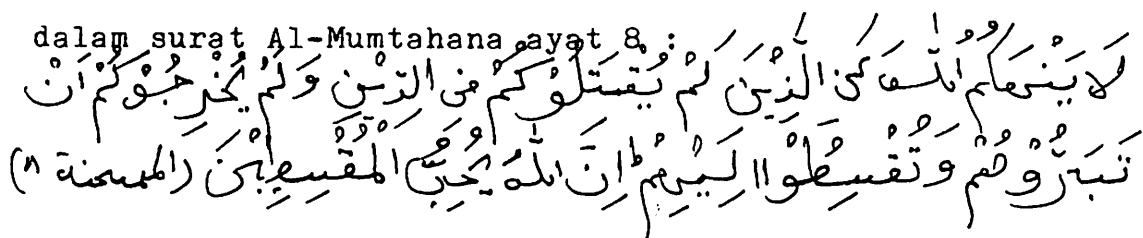 dalam surat Al-Mumtahana ayat 8 :
لَا يَنْهَاكُمُ اللّٰهُ عَنِ الَّذِيْنَ لَمْ يُقَتِلُوْكُمْ فِى الدِّيْنِ وَلَمْ يُخْرِجُوْكُمْ اَنْ
تَبَرُّوْهُمْ وَتُقْسِطُوْا اِلَيْهِمْ اِنَّ اللّٰهَ يُحِبُّ الْمُقْسِطِيْنَ (الممتحنة ٨)